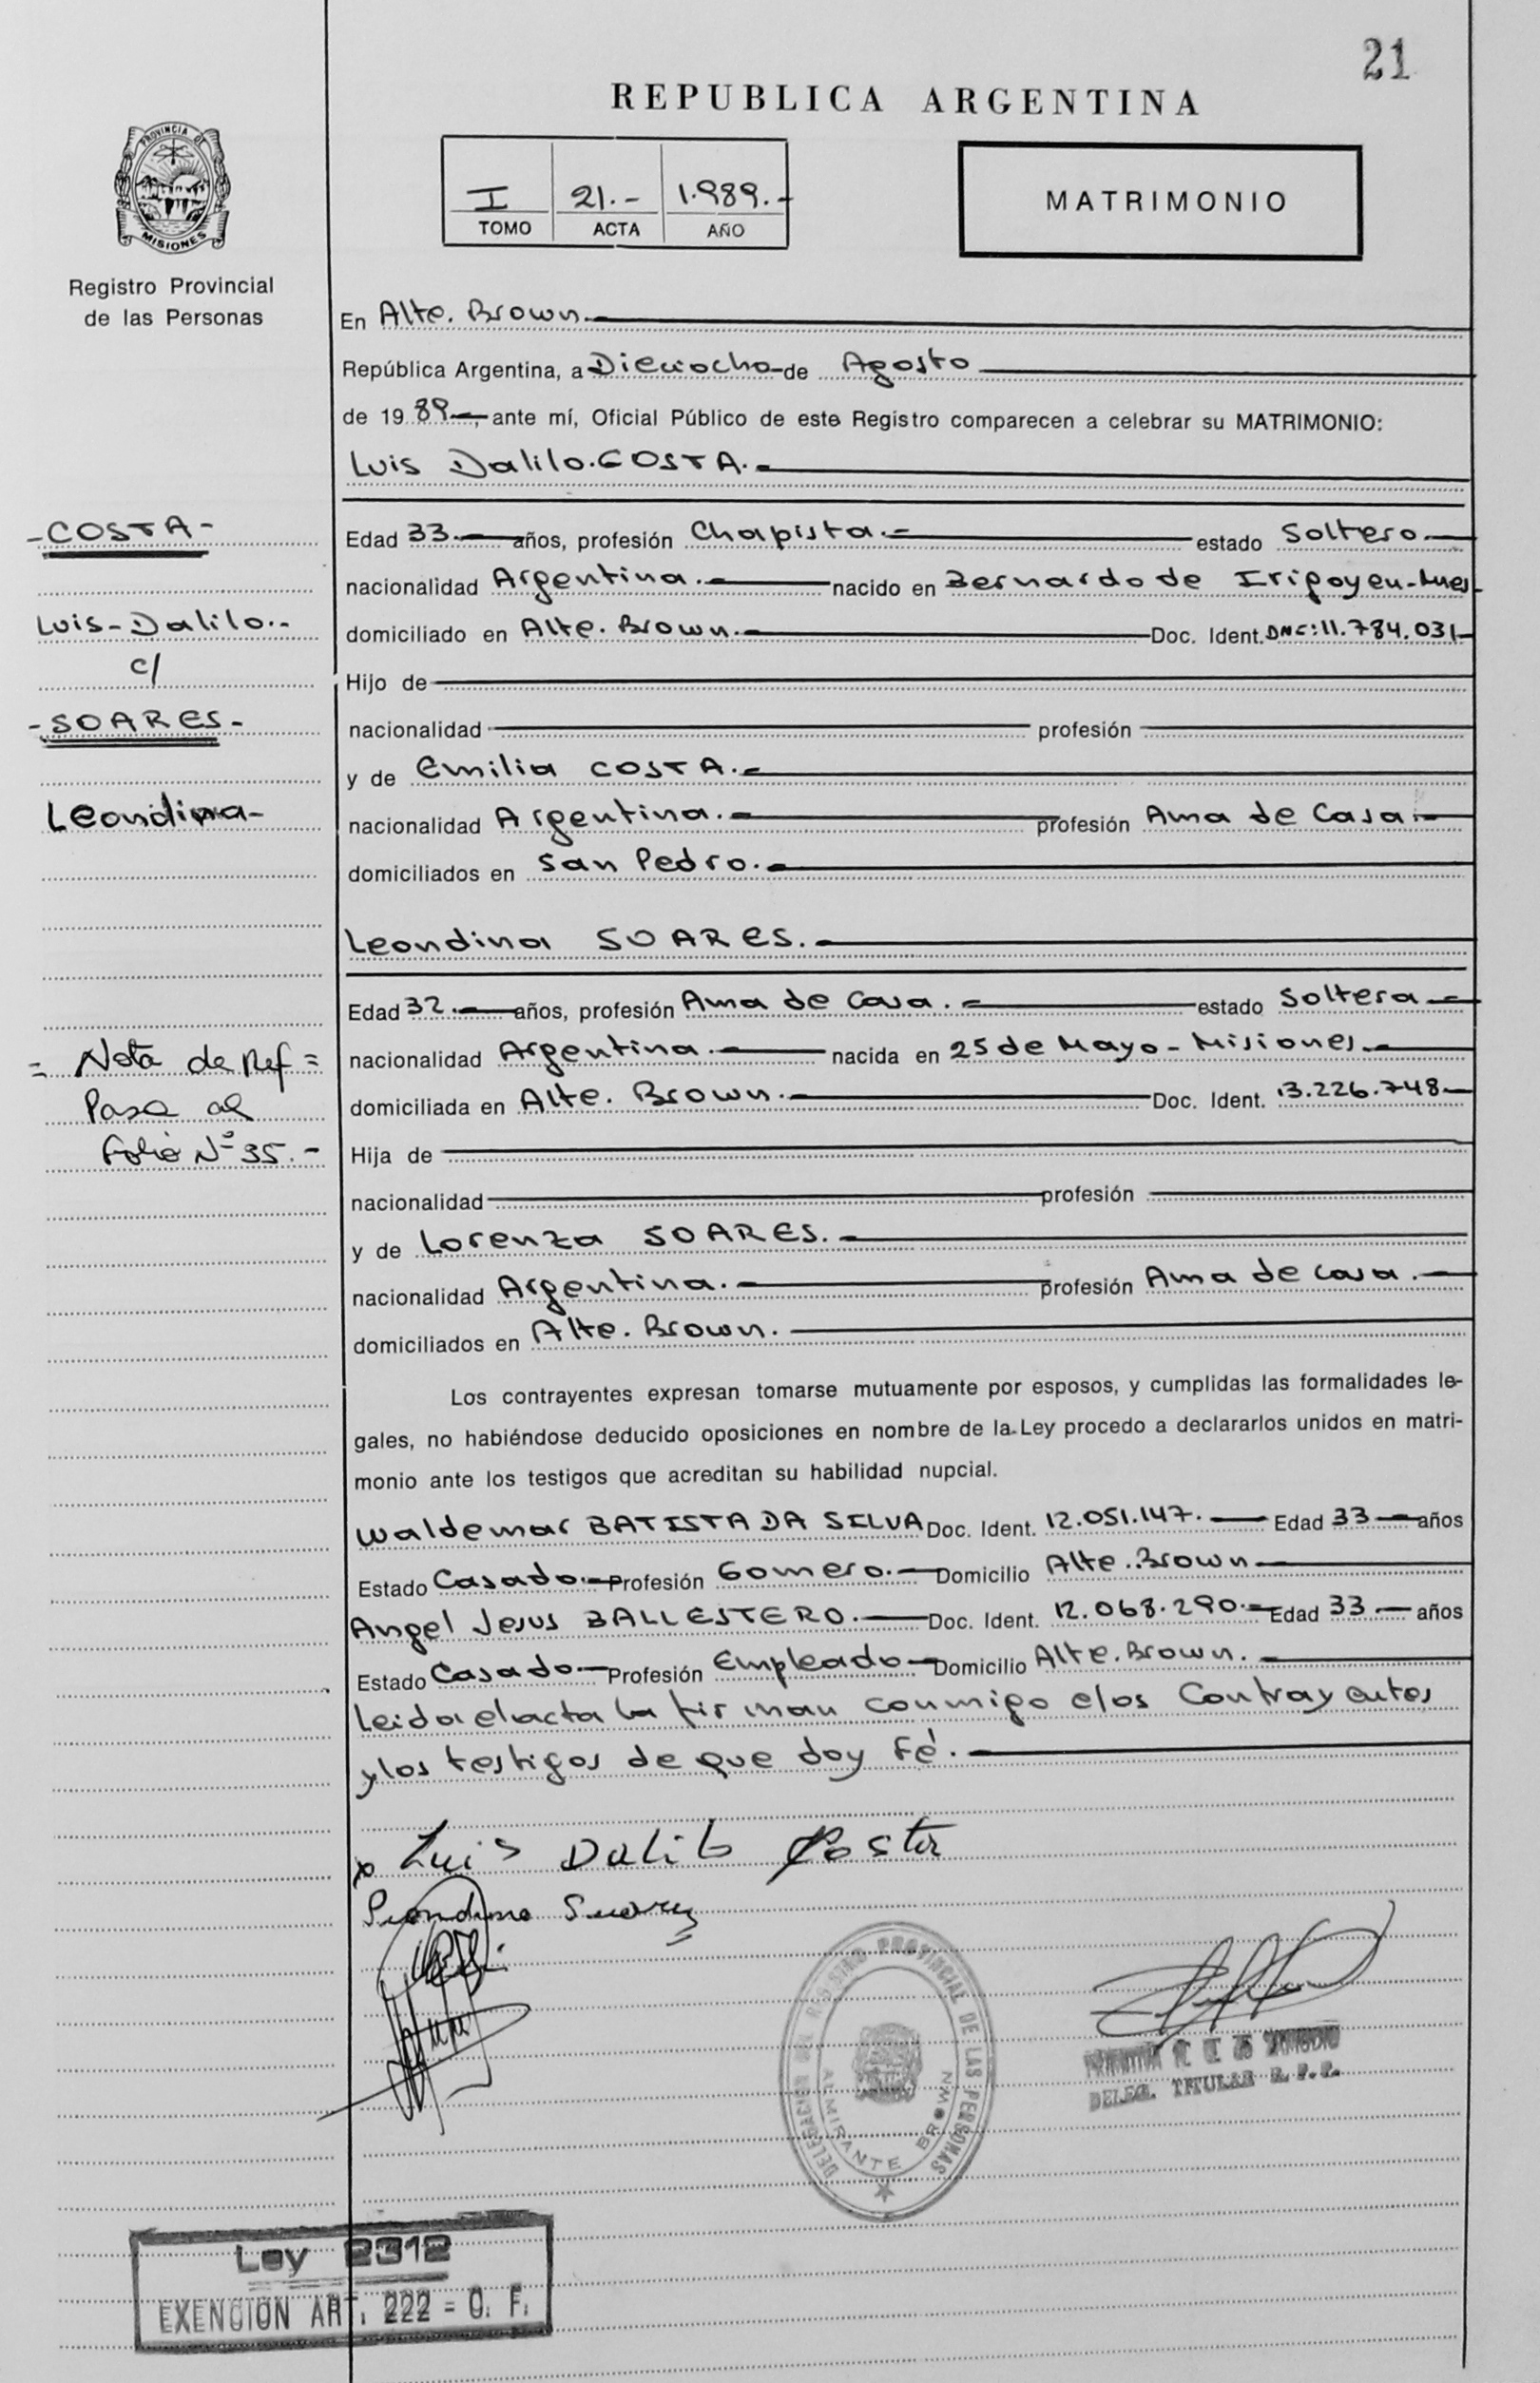 21
REPUBLICA ARGENTINA
PROVINCIA DE
MISIONES
I 21.- 1.989.-
TOMO ACTA AÑO
MATRIMONIO
Registro Provincial
de las Personas
En Alte. Brown.
República Argentina, a Dieciocho de Agosto
de 19 89, ante mí, Oficial Público de este Registro comparecen a celebrar su MATRIMONIO:
Luis Dalilo COSTA.-
-COSTA-
Edad 33.- años, profesión Chapista.- estado Soltero
nacionalidad Argentina.- nacido en Bernardo de Irigoyen-Mnes
Luis-Dalilo.-
domiciliado en Alte. Brown.- Doc. Ident. DNI: 11.784.031-
c/
Hijo de
-SOARES-
nacionalidad profesión
y de Emilia COSTA.-
Leondina-
nacionalidad Argentina.- profesión Ama de Casa.-
domiciliados en San Pedro.-
Leondina SOARES.-
Edad 32.- años, profesión Ama de Casa.- estado Soltera
= Nota de Ref =
nacionalidad Argentina.- nacida en 25 de Mayo - Misiones.-
Pasa al
domiciliada en Alte. Brown.- Doc. Ident. 13.226.748-
Folio Nº 35.-
Hija de
nacionalidad profesión
y de Lorenza SOARES.-
nacionalidad Argentina.- profesión Ama de Casa.-
domiciliados en Alte. Brown.
Los contrayentes expresan tomarse mutuamente por esposos, y cumplidas las formalidades le-
gales, no habiéndose deducido oposiciones en nombre de la Ley procedo a declararlos unidos en matri-
monio ante los testigos que acreditan su habilidad nupcial.
Waldemar BATISTA DA SILVA Doc. Ident. 12.051.147.- Edad 33 años
Estado Casado.- Profesión Gomero.- Domicilio Alte. Brown
Angel Jesus BALLESTERO.- Doc. Ident. 12.068.290.- Edad 33 años
Estado Casado- Profesión Empleado- Domicilio Alte. Brown.-
Leida el acta la firman conmigo elos Contrayentes
y los testigos de que doy Fé.-
Luis Dalilo Costa
Leondina Suarez
DELEGACION DEL REGISTRO PROVINCIAL DE LAS PERSONAS
ALMIRANTE BROWN
DELEG. TITULAR R. P. P.
Ley 2312
EXENCION ART. 222 = C. F.